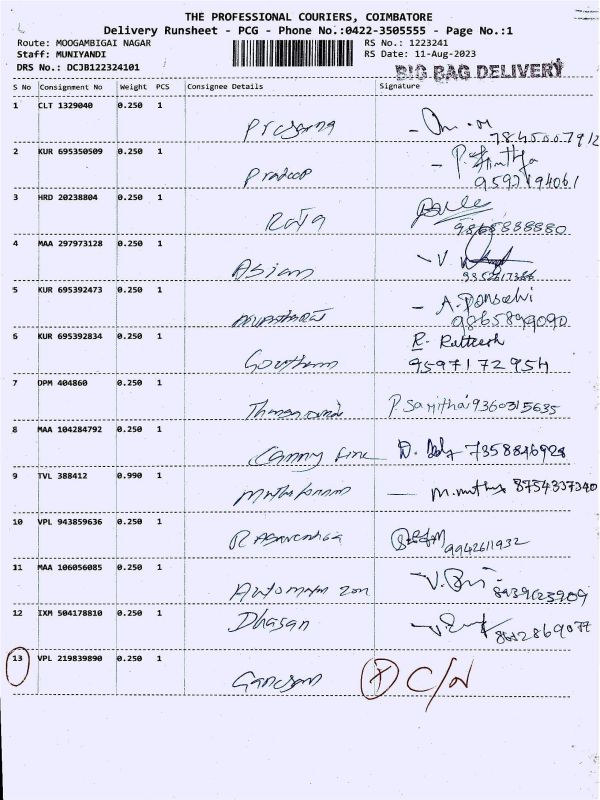 THE PROFESSIONAL COURIERS, COIMBATORE
Delivery Runsheet - PCG - Phone No.:0422-3505555 - Page No.:1
Route: MOOGAMBIGAI NAGAR RS No.: 1223241
Staff: MUNIYANDI RS Date: 11-Aug-2023
DRS No.: DCJB122324101 BIG BAG DELIVERY
S No Consignment No Weight PCS Consignee Details Signature
1 CLT 1329040 0.250 1
78450007912
2 KUR 695350509 0.250 1 Pradeep
3 HRD 20238804 0.250 1 Raja
9865888880
4 MAA 297973128 0.250 1 Asian - V.
5 KUR 695392473 0.250 1 - A. Ponselvi
9865899090
6 KUR 695392834 0.250 1 Goutham R. Rutteesh
9597172954
7 OPM 404860 0.250 1 P. Samitha 9360315635
8 MAA 104284792 0.250 1 D. 7358846928
9 TVL 388412 0.990 1 M. muthu 8754337340
10 VPL 943859636 0.250 1
9942611932
11 MAA 106056085 0.250 1 V.
12 IXM 504178810 0.250 1 Dhasan V.
13 VPL 219839890 0.250 1 Ganesan C/N